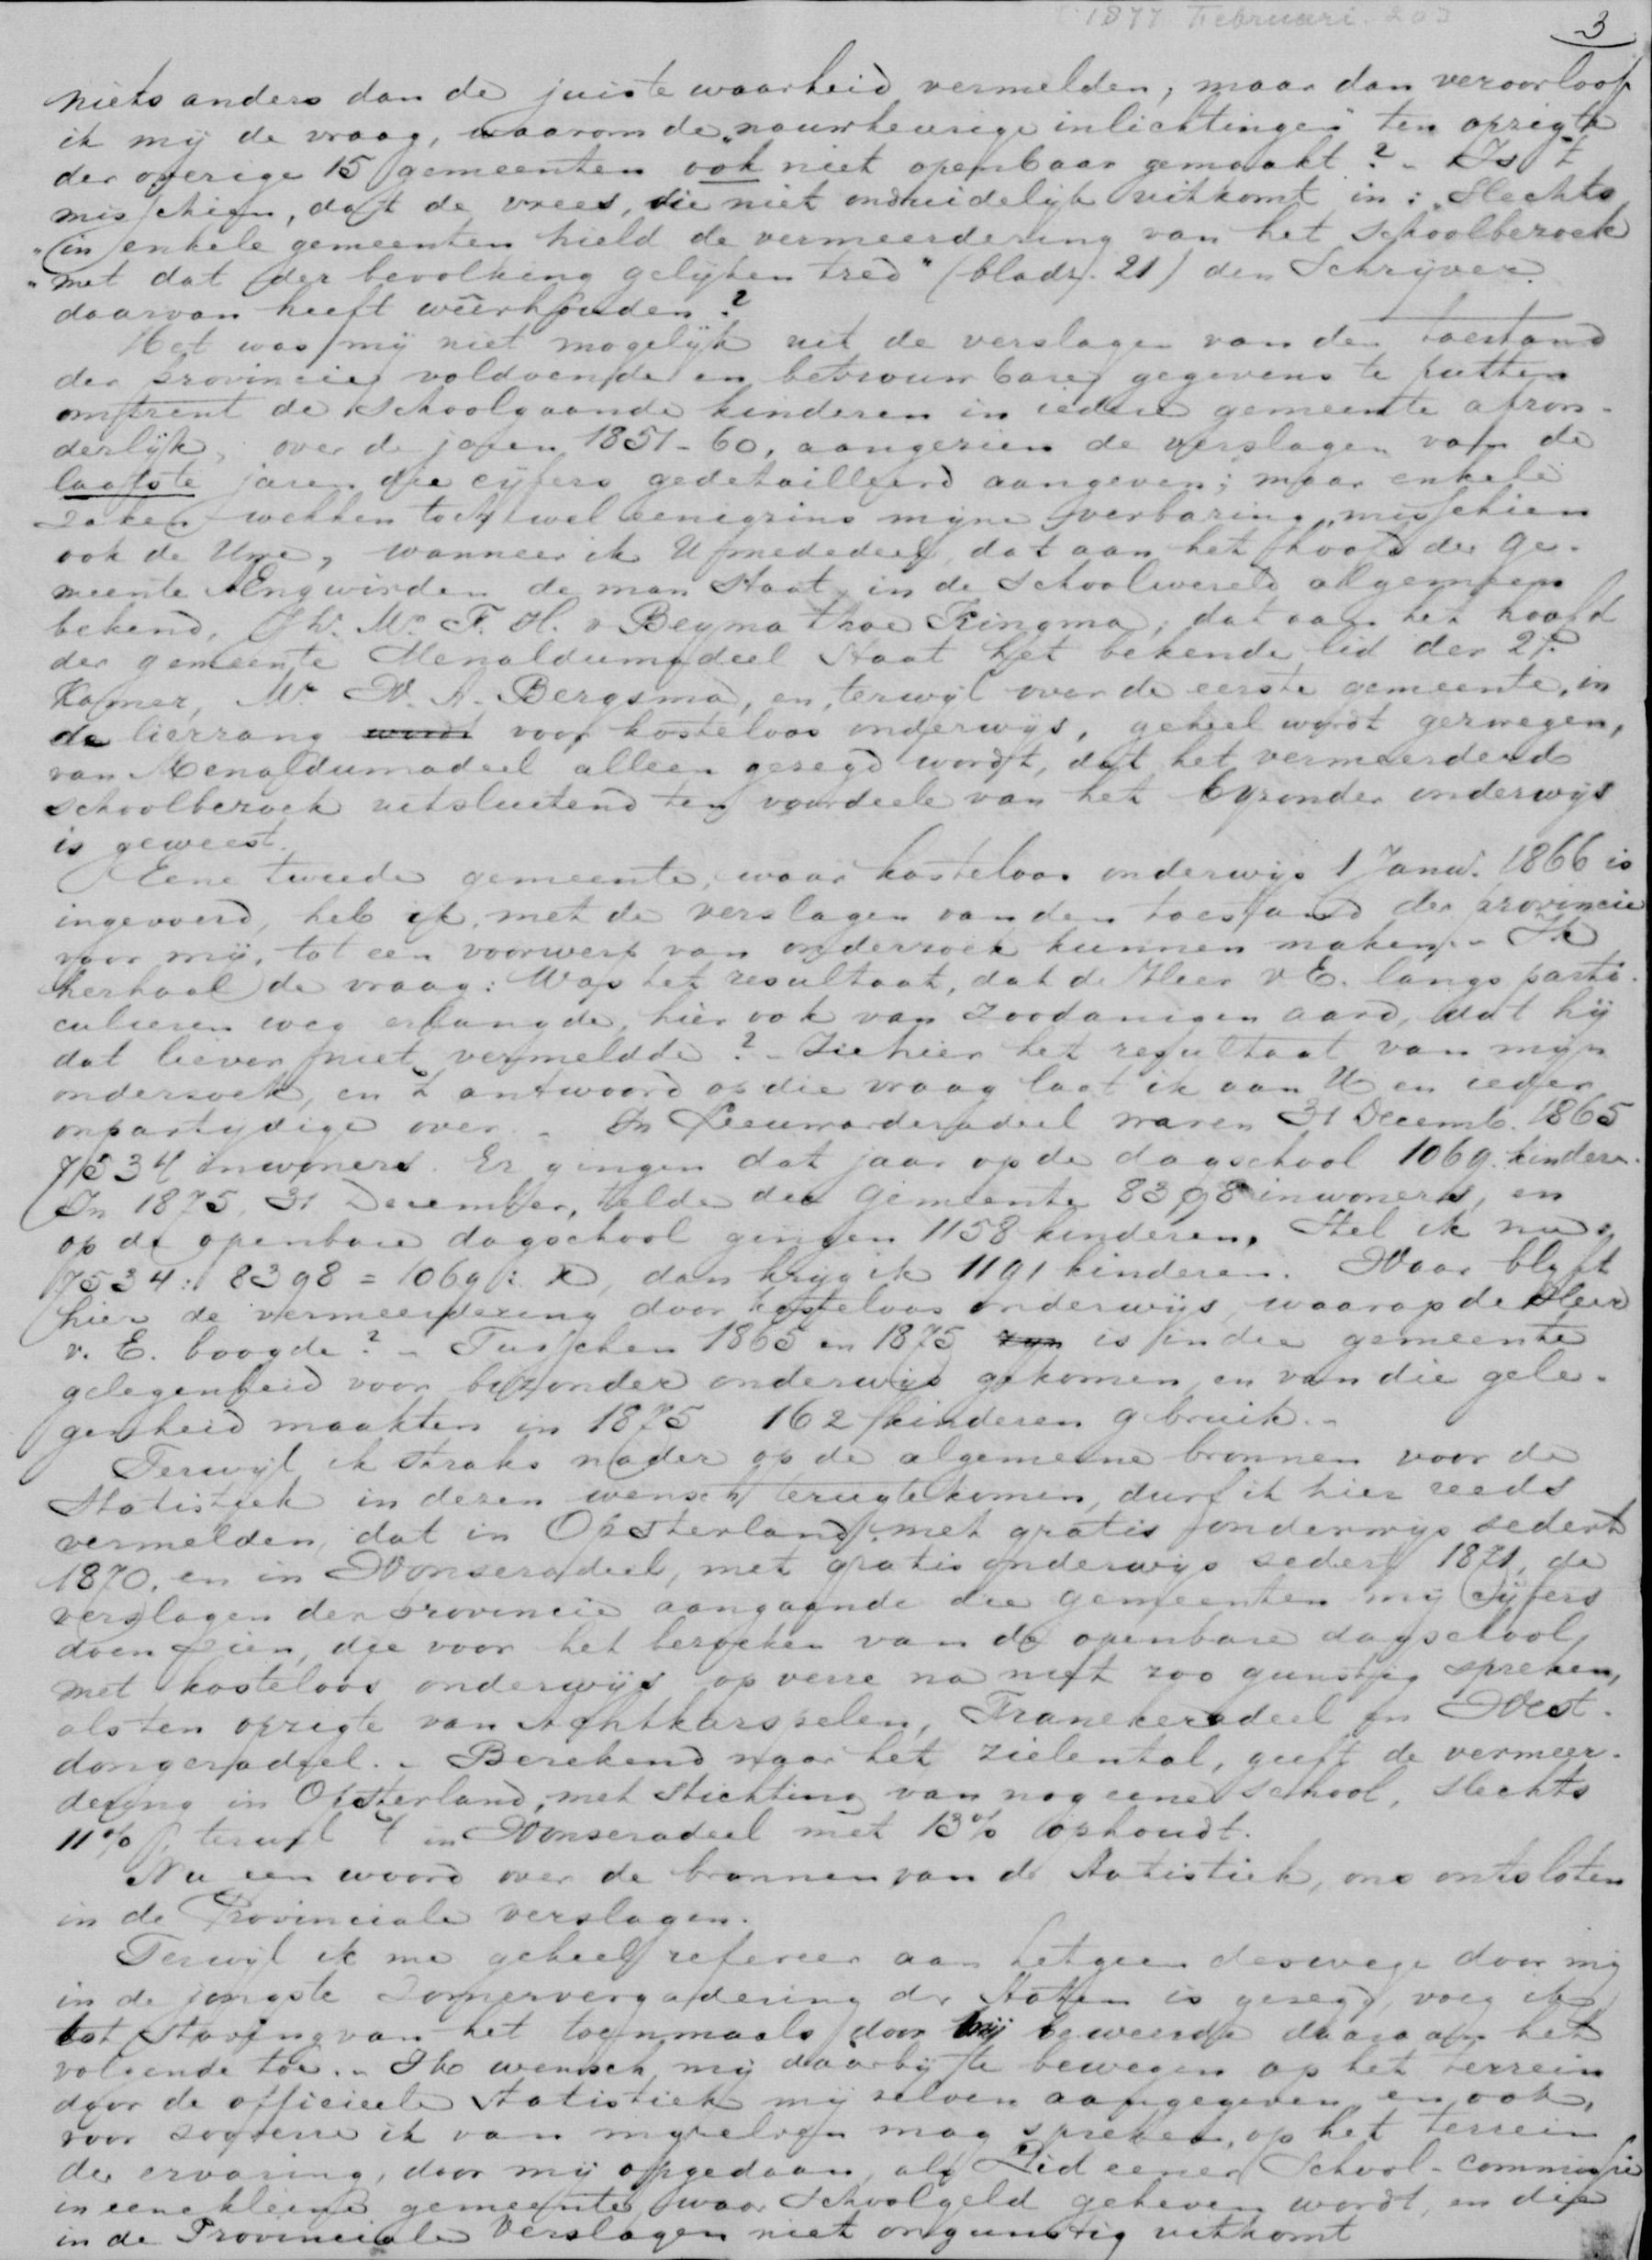 1877 Februari 20
3
niets anders dan de juiste waarheid vermelden; maar dan veroorloof
ik mij de vraag, waarom de "nauwkeurige inlichtingen" ten opzigte
der overige 15 gemeenten ook niet openbaar gemaakt? - Is 't
misschien, dat de vrees, die niet onduidelijk uitkomt in: "Slechts
"in enkele gemeenten hield de vermeerdering van het schoolbezoek
"met dat der bevolking gelijken tred" (bladz. 21) den Schrijver
daarvan heeft weêrhouden?
Het was mij niet mogelijk uit de verslagen van den toestand
der provincie voldoende en betrouwbare gegevens te putten
omtrent de schoolgaande kinderen in iedere gemeente afzon-
derlijk, over de jaren 1851-60, aangezien de verslagen van de
laatste jaren die cijfers gedetailleerd aangeven; maar enkele
zaken wekken toch wel eenigzins mijne verbazing, misschien
ook de Uwe, wanneer ik U mededeel, dat aan het hoofd der ge-
meente Aengwirden de man staat, in de schoolwereld algemeen
bekend, Jhr. Mr. F. H. v Beyma thoe Kingma; dat aan het hoofd
der gemeente Menaldumadeel staat het bekende lid der 2e
Kamer, Mr. W. A. Bergsma, en, terwijl over de eerste gemeente, in
de lierzang wordt voor kosteloos onderwijs, geheel wordt gezwegen,
van Menaldumadeel alleen gezegd wordt, dat het vermeerderd
schoolbezoek uitsluitend ten voordeele van het byzonder onderwijs
is geweest.
Eene tweede gemeente, waar kosteloos onderwijs 1 Januˑ 1866 is
ingevoerd, heb ik, met de verslagen van den toestand der provincie
voor mij, tot een voorwerp van onderzoek kunnen maken. - Ik
herhaal de vraag: Was het resultaat, dat de Heer v E. langs parti-
culieren weg erlangde, hier ook van zoodanigen aard, dat hij
dat liever niet vermeldde? - Ziehier het resultaat van mijn
onderzoek, en 't antwoord op die vraag laat ik aan U en ieder
onpartydige over. - In Leeuwarderadeel waren 31 Decemb. 1865
7534 inwoners. Er gingen dat jaar op de dagschool 1069 kinderen.
In 1875, 31 December, telde die gemeente 8398 inwoners, en
op de openbare dagschool gingen 1158 kinderen. Stel ik nu
7534 : 8398 = 1069 : x, dan krijg ik 1191 kinderen. Waar blyft
hier de vermeerdering door kosteloos onderwijs, waarop de Heer
v. E. boogde? - Tusschen 1865 en 1875 zyn is in die gemeente
gelegenheid voor bijzonder onderwijs gekomen, en van die gele-
genheid maakten in 1875 162 kinderen gebruik. -
Terwijl ik straks nader op de algemeene bronnen voor de
Statistiek in dezen wensch terug te komen, durf ik hier reeds
vermelden, dat in Opsterland, met gratis onderwijs sedert
1870, en in Wonseradeel, met gratis onderwijs sedert 1871, de
verslagen der provincie aangaande die gemeenten mij cijfers
doen zien, die voor het bezoeken van de openbare dagschool,
met kosteloos onderwijs op verre na niet zoo gunstig spreken,
als ten opzigte van Achtkarspelen, Franekeradeel en West-
dongeradeel. - Berekend naar het zielental, geeft de vermeer-
dering in Opsterland, met stichting van nog eene school, slechts
11%, terwyl 't in Wonseradeel met 13% ophoudt.
Nu een woord over de bronnen van de Statistiek, ons ontsloten
in de Provinciale verslagen.
Terwijl ik me geheel refereer aan hetgeen deswege door mij
in de jongste Zomervergadering der Staten is gezegd, voeg ik
tot staving van het toenmaals door mij beweerde daaraan het
volgende toe. - Ik wensch mij daarbij te bewegen op het terrein
door de officieele Statistiek mij zelven aangegeven, en ook,
voor zooverre ik van mijzelven mag spreken, op het terrein
der ervaring, door mij opgedaan, als Lid eener School-commissie
in eene kleine gemeente, waar schoolgeld geheven wordt, en die
in de Provinciale Verslagen niet ongunstig uitkomt